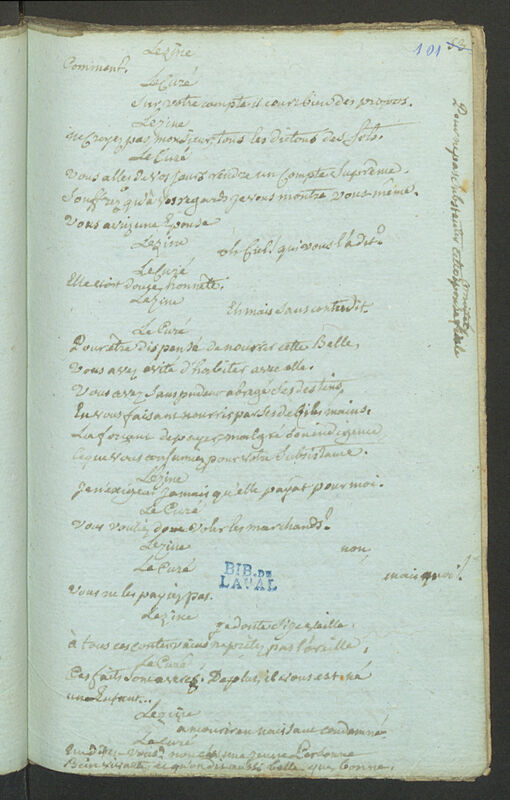 101
Lezine
Comment.
Le Curé
Sur votre compte il court bien des propos.
Lezine
ne croyez pas monsieur, tous les dictons des sots.
Le Curé
Vous allez de vos jours rendre un compte suprême,
souffrez qu'à vos regards je vous montre vous-même.
Vous aviez une Epouse
Lezine
oh Ciel! qui vous l'a dit?
Le Curé
Elle étoit douce, honnête.
Lezine
Eh mais sans contredit.
Le Curé
Pour être dispensé de nourrir cette Belle,
Vous avez évité d'habiter avec elle.
Vous avez sans pudeur abrégé ses destins,
En vous faisant nourrir par ses débiles mains.
La forçant de payer malgré son indigence
ce que vous consumiez pour votre subsistance.
Lezine
Je n'exigeai jamais qu'elle payat pour moi.
Le Curé
Vous vouliez donc voler les marchands?
Lezine
non
Le Curé
mais quoi!
Vous ne les payiez pas.
Lezine
à tous ces contes vains ne prêtez pas l'oreille,
Le Curé
Ces faits sont avérés. De plus, il vous est né
un Enfant...
Lezine
Le Curé
une jeune Personne
Bienfaisante, et qu'on dit aussi belle que bonne,
BIB. DE
LAVAL
Pour ne pas